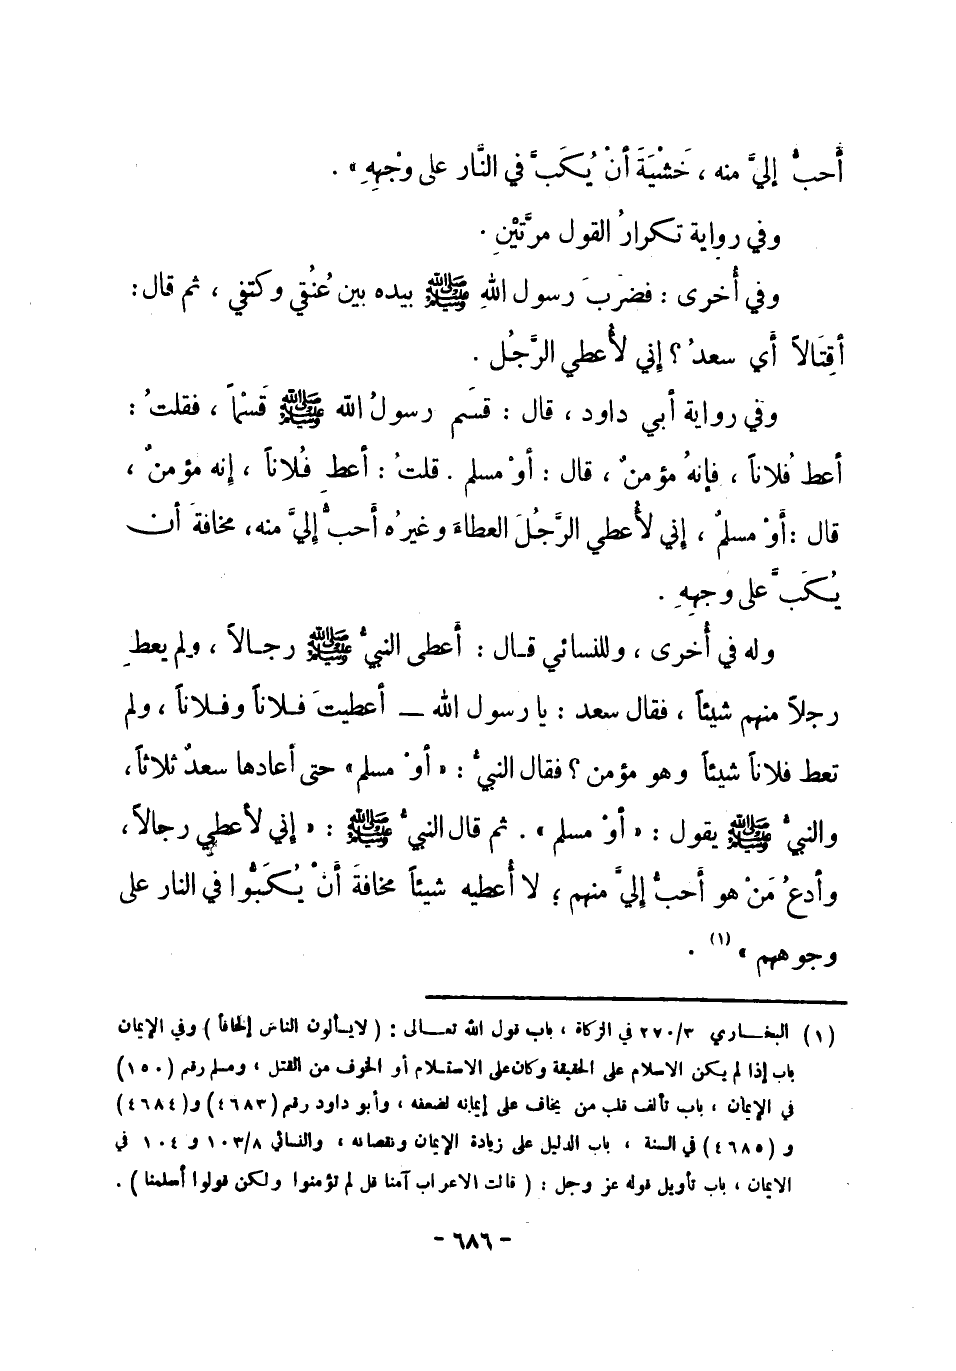 أَحبُّ إليَّ منه ، خَشْيَةَ أنْ يُكَبَّ في النَّار على وجْهِهِ » .
وفي رواية تكرارُ القول مرَّتيْنِ .
وفي أُخرى : فضربَ رسول اللهِ ﷺ بيده بين عُنُقي وكتفي ، ثم قال :
أقِتَالاً أي سعدُ ؟ إني لأُعطي الرَّجُل .
وفي رواية أبي داود ، قال : قسَم رسولُ الله ﷺ قَسْماً ، فقلتُ :
أعط فُلاناً ، فإنهُ مؤمنٌ ، قال : أوْ مسلم . قلتُ : أعطِ فُلاناً ، إنه مؤمنٌ ،
قال : أَوْ مسلمٌ ، إني لأُعطي الرَّجُلَ العطاءَ وغيرُه أَحبُّ إليَّ منه ، مخافةَ أن
يُكَبَّ على وجهِهِ .
وله في أُخرى ، وللنسائي قال : أَعطى النبيُّ ﷺ رجالاً ، ولم يعطِ
رجلاً منهم شيئاً ، فقال سعد : يا رسول الله ــ أعطيتَ فلاناً وفلاناً ، ولم
تعط فلاناً شيئاً وهو مؤمن ؟ فقال النبيُّ : « أوْ مسلم » حتى أعادها سعدٌ ثلاثاً ،
والنبيُّ ﷺ يقول : « أوْ مسلم » . ثم قال النبيُّ ﷺ : « إني لأعطي رجالاً ،
وأدعُ مَنْ هو أَحبُّ إليَّ منهم ؛ لا أُعطيه شيئاً مخافةَ أَنْ يُكَبُّوا في النار على
وجوههم » (١) .
(١) البخاري ٢٧٠/٣ في الزكاة ، باب قول الله تعالى : ( لا يسألون الناس إلحافاً ) وفي الإيمان
باب إذا لم يكن الاسلام على الحقيقة وكان على الاستسلام أو الخوف من القتل ، ومسلم رقم (١٥٠)
في الإيمان ، باب تألف قلب من يخاف على إيمانه لضعفه ، وأبو داود رقم (٤٦٨٣) و(٤٦٨٤)
و (٤٦٨٥) في السنة ، باب الدليل على زيادة الإيمان ونقصانه ، والنسائي ١٠٣/٨ و ١٠٤ في
الايمان ، باب تأويل قوله عز وجل : ( قالت الاعراب آمنا قل لم تؤمنوا ولكن قولوا أسلمنا ) .
- ٦٨٦ -